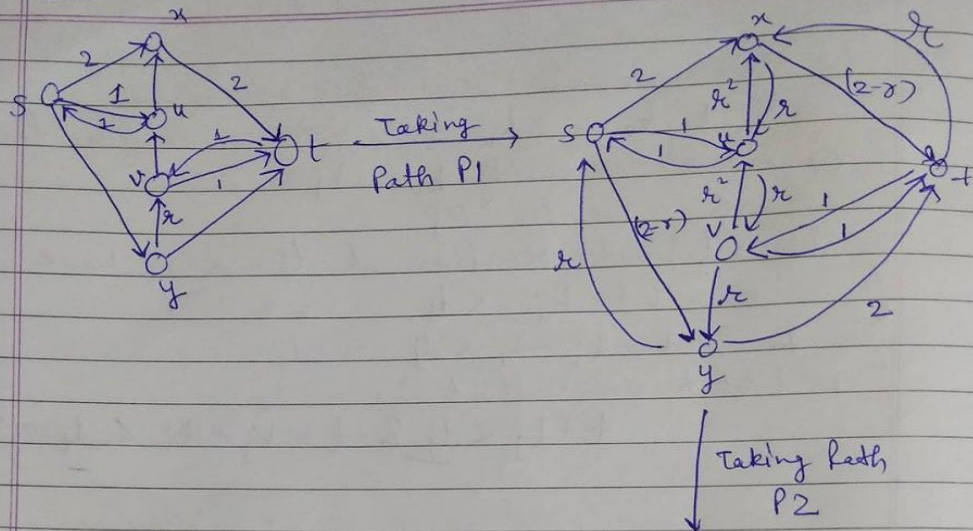 x
2
2
S
1
1
u
1
t
v
1
r
y
Taking
Path P1
x
2
r²
r
r
(2-r)
S
1
1
u
t
r²
r
1
1
v
(2-r)
r
r
2
y
Taking Path
P2